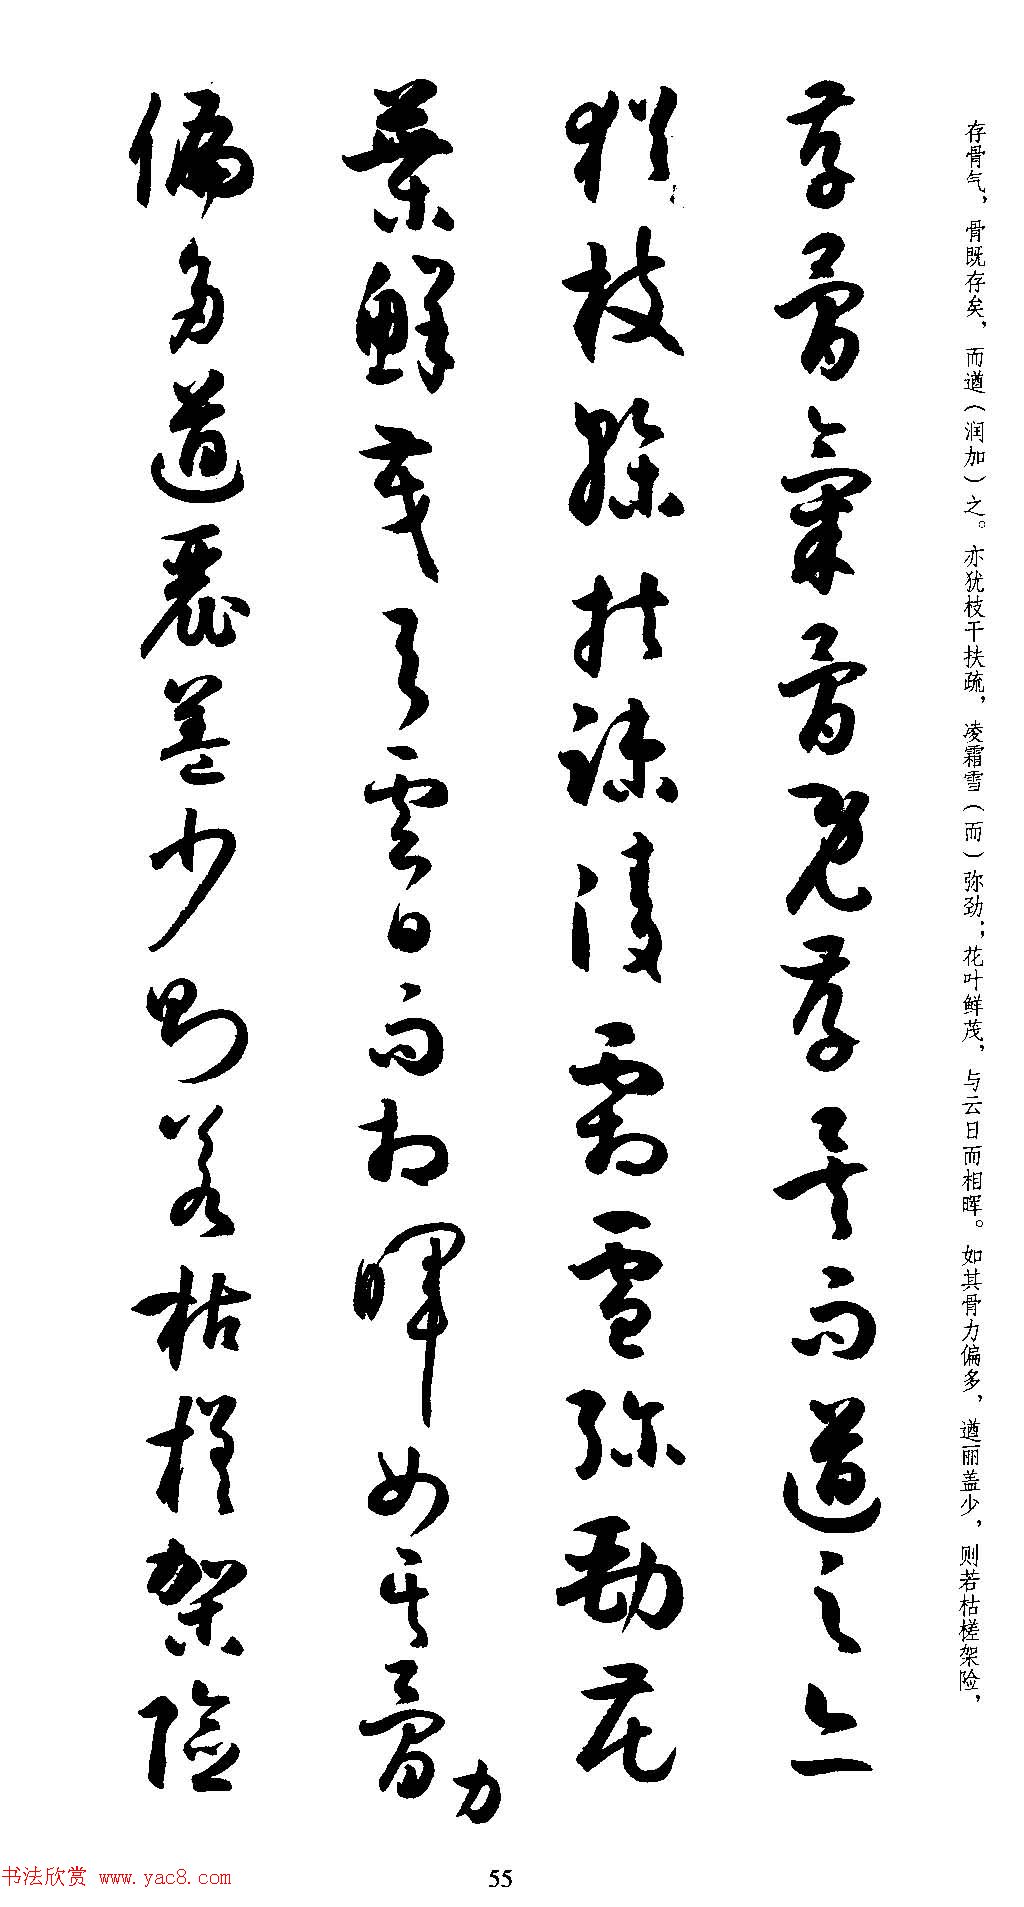 存骨气，骨既存矣，而遒（润加）之。亦犹枝干扶疏，凌霜雪（而）弥劲；花叶鲜茂，与云日而相晖。如其骨力偏多，遒丽盖少，则若枯槎架险，
存骨氣骨既存矣而遒之亦
猶枝幹扶疎凌霜雪弥勁花
葉鮮茂與雲日而相暉如其骨力
偏多遒麗蓋少則若枯槎架險
书法欣赏 www.yac8.com
55